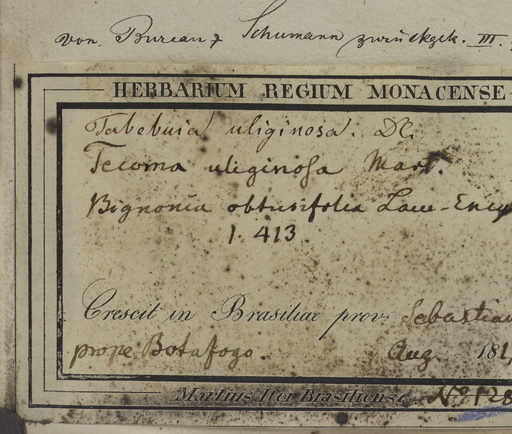 von Bureau & Schumann zurückgek. III.
HERBARIUM REGIUM MONACENSE
Tabebuia uliginosa. DC.
Tecoma uliginosa Mart.
Bignonia obtusifolia Lam. Ency
1. 413
Crescit in Brasiliae prov. Sebastian
prope Botafogo. Aug. 181
Martius Iter Brasiliense Nº 128